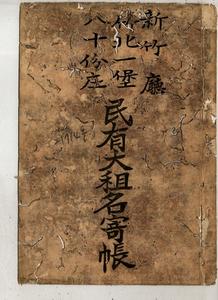 新竹廳
竹北一堡
八十份庄
民有大租名寄帳